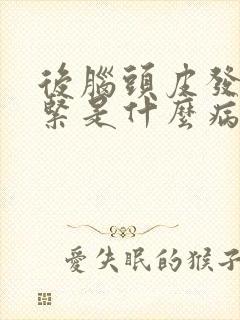 後腦頭皮發
緊是什麼病
愛失眠的猴子